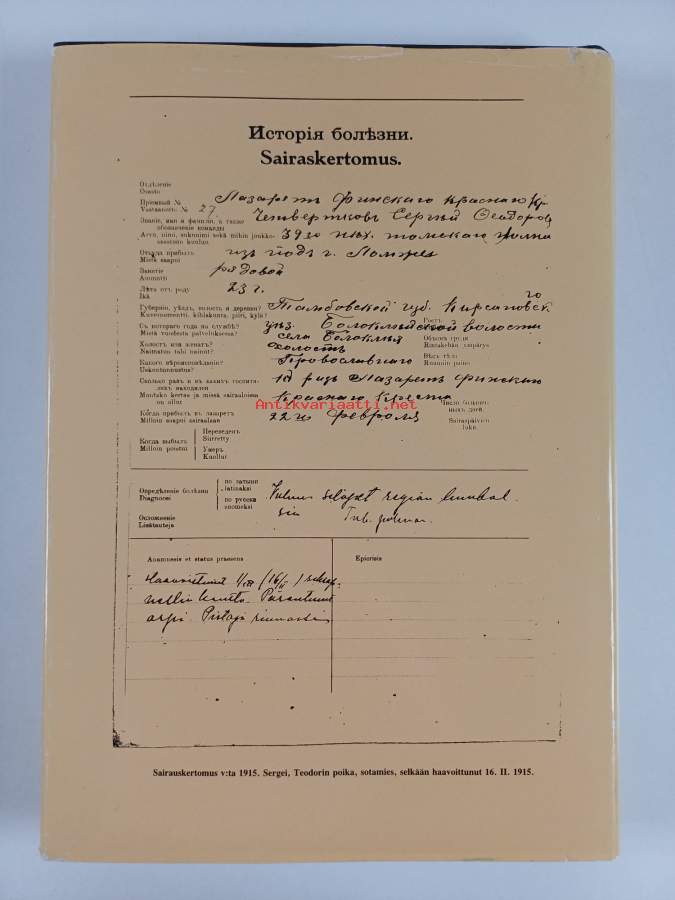 Исторія болѣзни.
Sairaskertomus.
Отдѣленіе
Osasto
Пріемный № Лазаретъ Финскаго Краснаго Кр
Vastaanotto № 27 Четвертковъ Сергѣй Ѳеодоров
Званіе, имя и фамилія, а также
обозначеніе команды
Arvo, nimi, sukunimi sekä mihin joukko- 39го пѣх. томскаго полка
osastoon kuuluu
Откуда прибылъ изъ подъ г. Ломжа
Mistä saapui
Занятіе рядовой
Ammatti
Лѣта отъ роду 23 г.
Ikä
Губернія, уѣздъ, волость и деревня? Тамбовской губ. Кирсановск. го
Kuvernementti, kihlakunta, pitäjä, kylä?
Съ котораго года на службѣ? уѣз. волости
Mistä vuodesta palveluksessa? села
Ростъ
Объемъ груди
Rintakehän ympärys
Холостъ или женатъ? холостъ
Naimaton tahi nainut?
Какого вѣроисповѣданія? Православнаго
Uskontunnustus?
Вѣсъ тѣла
Ruumiin paino
Сколько разъ и въ какихъ госпита- 1й разъ Лазаретъ Финскаго
ляхъ находился
Montako kertaa ja missä sairaaloissa Краснаго Креста
on ollut
Число болѣзнен-
ныхъ дней.
Sairaspäivien
luku.
Когда прибылъ въ лазаретъ 22го Февраля
Milloin saapui sairaalaan
Когда выбылъ
Milloin poistui
Переведенъ
Siirretty
Умеръ
Kuollut
Antikvariaatti.net
Опредѣленіе болѣзни
Diagnoosi
по латыни
latinaksi
по русски
suomeksi
Vulnus sclopet region lumbal
Осложненіе
Lisätauteja
sin Tub. pulmon.
Anamnesis et status praesens
Epicrisis
Haavoittunut (16/II)
Parantunut
arpi. Pistoja rinnassa
Sairauskertomus v:ta 1915. Sergei, Teodorin poika, sotamies, selkään haavoittunut 16. II. 1915.